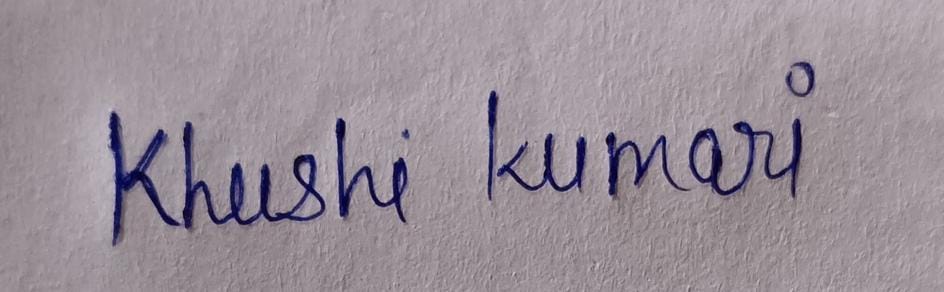 Khushi kumari